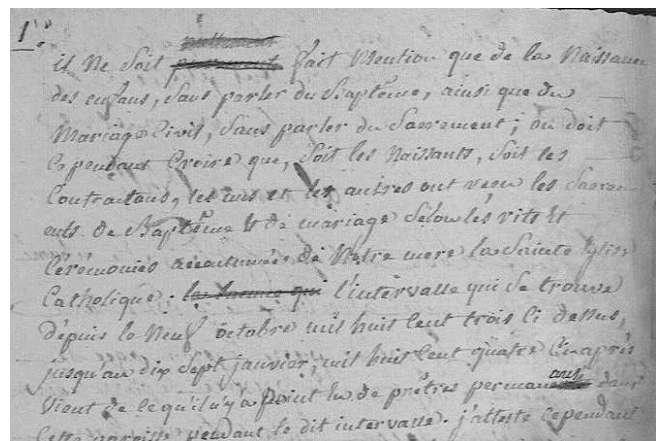 1°.
il ne soit fait Mention que de la Naissance
des enfans, sans parler du Baptême, ainsi que du
Mariage Civil, sans parler du Sacrement ; on doit
Cependant Croire que, soit les Naissants, soit les
Contractans, les uns et les autres ont recu les Sacrem
ents de Baptême et de mariage Selon les rits et
Cérémonies accoutumées de Notre mere la Sainte Eglise
Catholique : la lacune qui l'intervalle qui se trouve
depuis le Neuf octobre mil huit Cent trois Ci dessus,
jusqu'au dix Sept janvier, mil huit Cent quatre Ci après
Vient de ce qu'il n'y a point eu de prêtres permanans dans
Cette paroisse pendant le dit intervalle. j'atteste Cependant